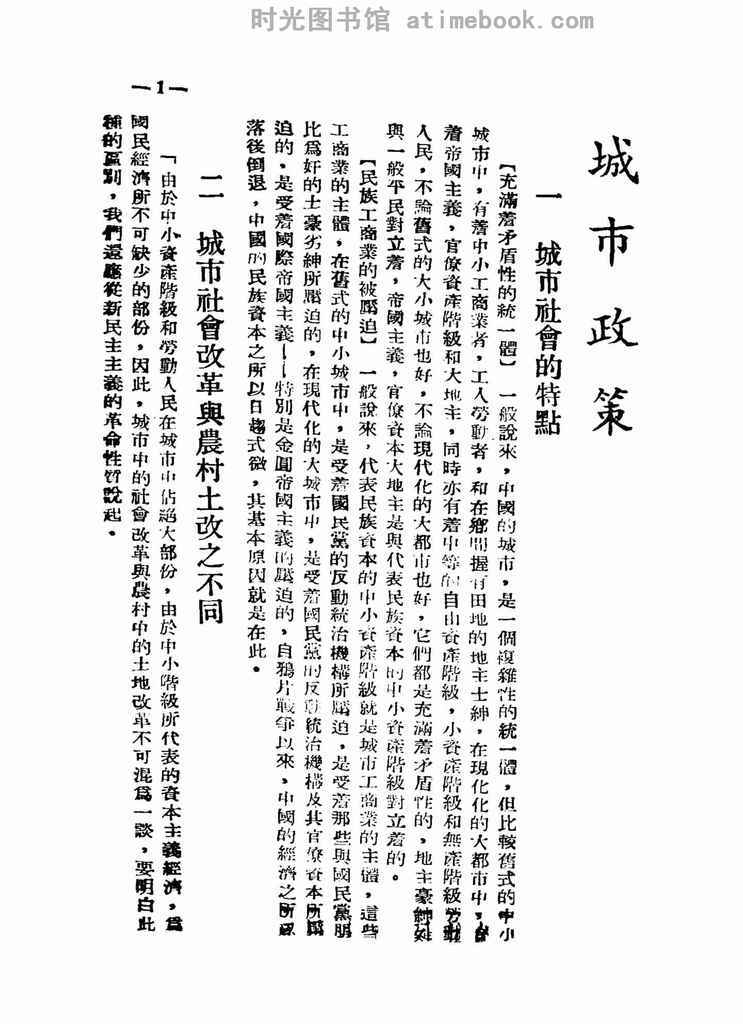 时光图书馆 atimebook.com
—1—
城市政策
一　城市社會的特點
【充滿着矛盾性的統一體】　一般說來，中國的城市，是一個複雜性的統一體，但比較舊式的中小
城市中，有着中小工商業者，工人勞動者，和在鄉間握有田地的地主士紳，在現化化的大都市中，
着帝國主義，官僚資產階級和大地主，同時亦有着中等的自由資產階級，小資產階級和無產階級勞動
人民，不論舊式的大小城市也好，不論現代化的大都市也好，它們都是充滿着矛盾性的，地主豪紳
與一般平民對立着，帝國主義，官僚資本大地主是與代表民族資本的中小資產階級對立着的。
【民族工商業的被壓迫】　一般說來，代表民族資本的中小資產階級就是城市工商業的主體，這些
工商業的主體，在舊式的中小城市中，是受着國民黨的反動統治機構所壓迫，是受着那些與國民黨朋
比爲奸的土豪劣紳所壓迫的，在現代化的大城市中，是受着國民黨的反動統治機構及其官僚資本所壓
迫的，是受着國際帝國主義——特別是金圓帝國主義的壓迫的，自鴉片戰爭以來，中國的經濟之所以
落後倒退，中國的民族資本之所以日趨式微，其基本原因就是在此。
二　城市社會改革與農村土改之不同
「由於中小資產階級和勞動人民在城市中佔絕大部份，由於中小階級所代表的資本主義經濟，爲
國民經濟所不可缺少的部份，因此，城市中的社會改革與農村中的土地改革不可混爲一談，要明白此
種的區別，我們還應從新民主主義的革命性質說起。